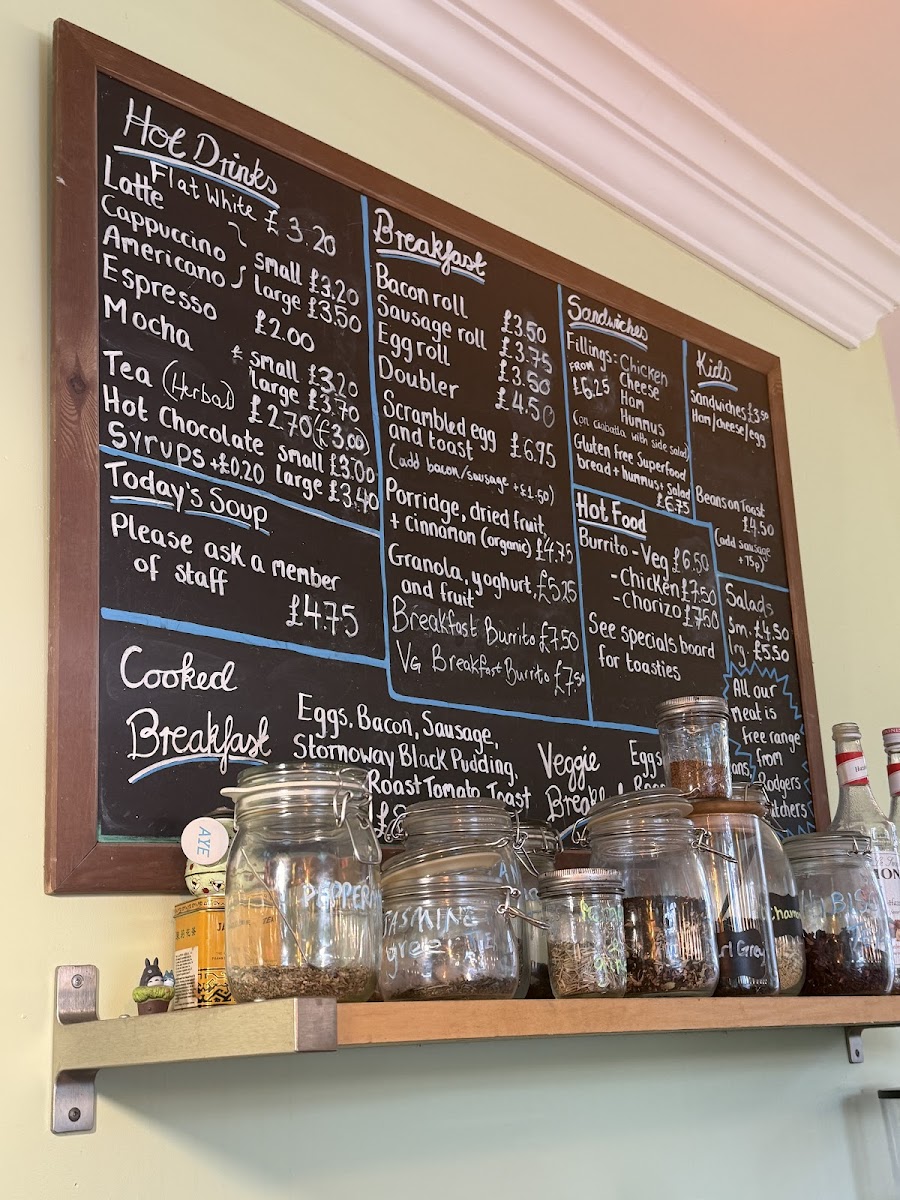 Hot Drinks
Flat White £3.20
Latte
Cappuccino small £3.20
Americano large £3.50
Espresso £2.00
Mocha small £3.20
large £3.70
Tea (Herbal) £2.70 (£3.00)
Hot Chocolate small £3.00
Syrups +£0.20 large £3.40
Today's Soup
Please ask a member
of staff
£4.75
Breakfast
Bacon roll £3.50
Sausage roll £3.75
Egg roll £3.50
Doubler £4.50
Scrambled egg
and toast £6.95
(add bacon/sausage +£1.50)
Porridge, dried fruit
+ cinnamon (organic) £4.75
Granola, yoghurt, £5.25
and fruit
Breakfast Burrito £7.50
VG Breakfast Burrito £7.50
Sandwiches
Fillings:- Chicken
FROM Cheese
£6.25 Ham
Hummus
(on ciabatta with side salad)
Gluten Free Superfood
bread + hummus + Salad
£6.75
Hot Food
Burrito - Veg £6.50
- Chicken £7.50
- Chorizo £7.50
See specials board
for toasties
Kids
Sandwiches £3.50
Ham/cheese/egg
Beans on Toast
£4.50
(add sausage
+75p)
Salads
Sm. £4.50
lrg. £5.50
All our
meat is
free range
from
Rodgers
Cooked
Breakfast
Eggs, Bacon, Sausage,
Stornoway Black Pudding,
Roast Tomato, Toast
Veggie
Eggs
AYE
JASMINE
green
Grey